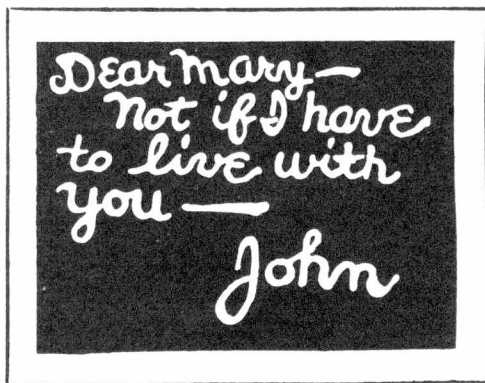 Dear Mary—
Not if I have
to live with
you—
John